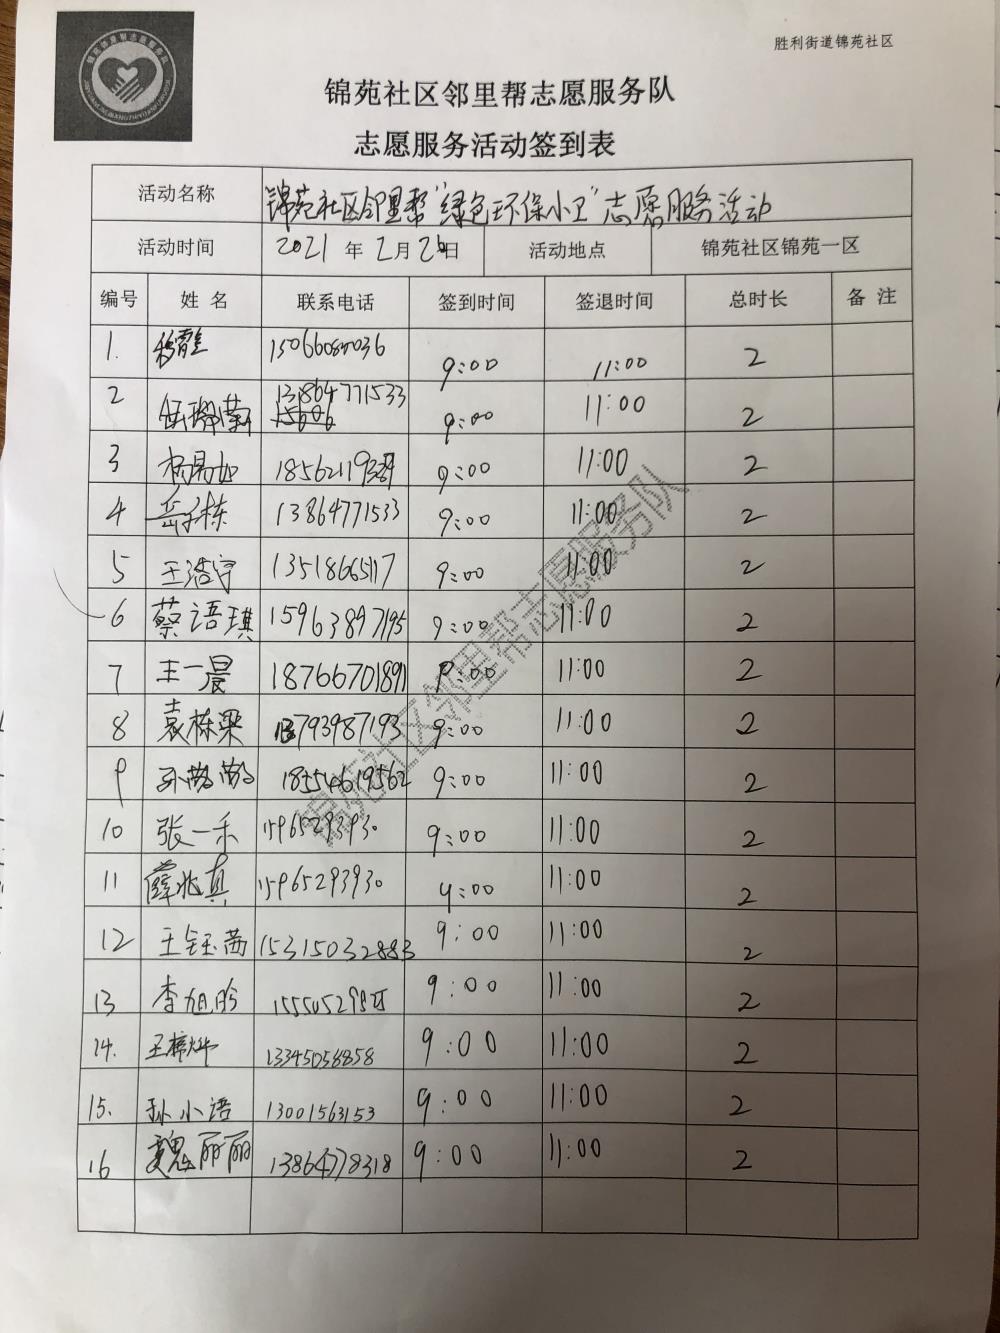 胜利街道锦苑社区
锦苑社区邻里帮志愿服务队
志愿服务活动签到表
活动名称 锦苑社区邻里帮“绿色环保小卫”志愿服务活动
活动时间 2021年2月26日 活动地点 锦苑社区锦苑一区
编号 姓名 联系电话 签到时间 签退时间 总时长 备注
1. 9:00 11:00 2
2 13864771533 9:00 11:00 2
3 杨易如 9:00 11:00 2
4 岳子栋 13864771533 9:00 11:00 2
5 王浩宇 13518665117 9:00 11:00 2
6 蔡语琪 15963897195 9:00 11:00 2
7 王一晨 18766701891 9:00 11:00 2
8 袁栋梁 13793987193 9:00 11:00 2
9 18554619562 9:00 11:00 2
10 张一禾 15965293930 9:00 11:00 2
11 薛兆真 15965293930 9:00 11:00 2
12 王钰茜 15315032883 9:00 11:00 2
13 李旭昀 9:00 11:00 2
14. 王梓灿 13345058858 9:00 11:00 2
15. 孙小语 13001563153 9:00 11:00 2
16 魏丽丽 13864778318 9:00 11:00 2
锦苑社区邻里帮志愿服务队